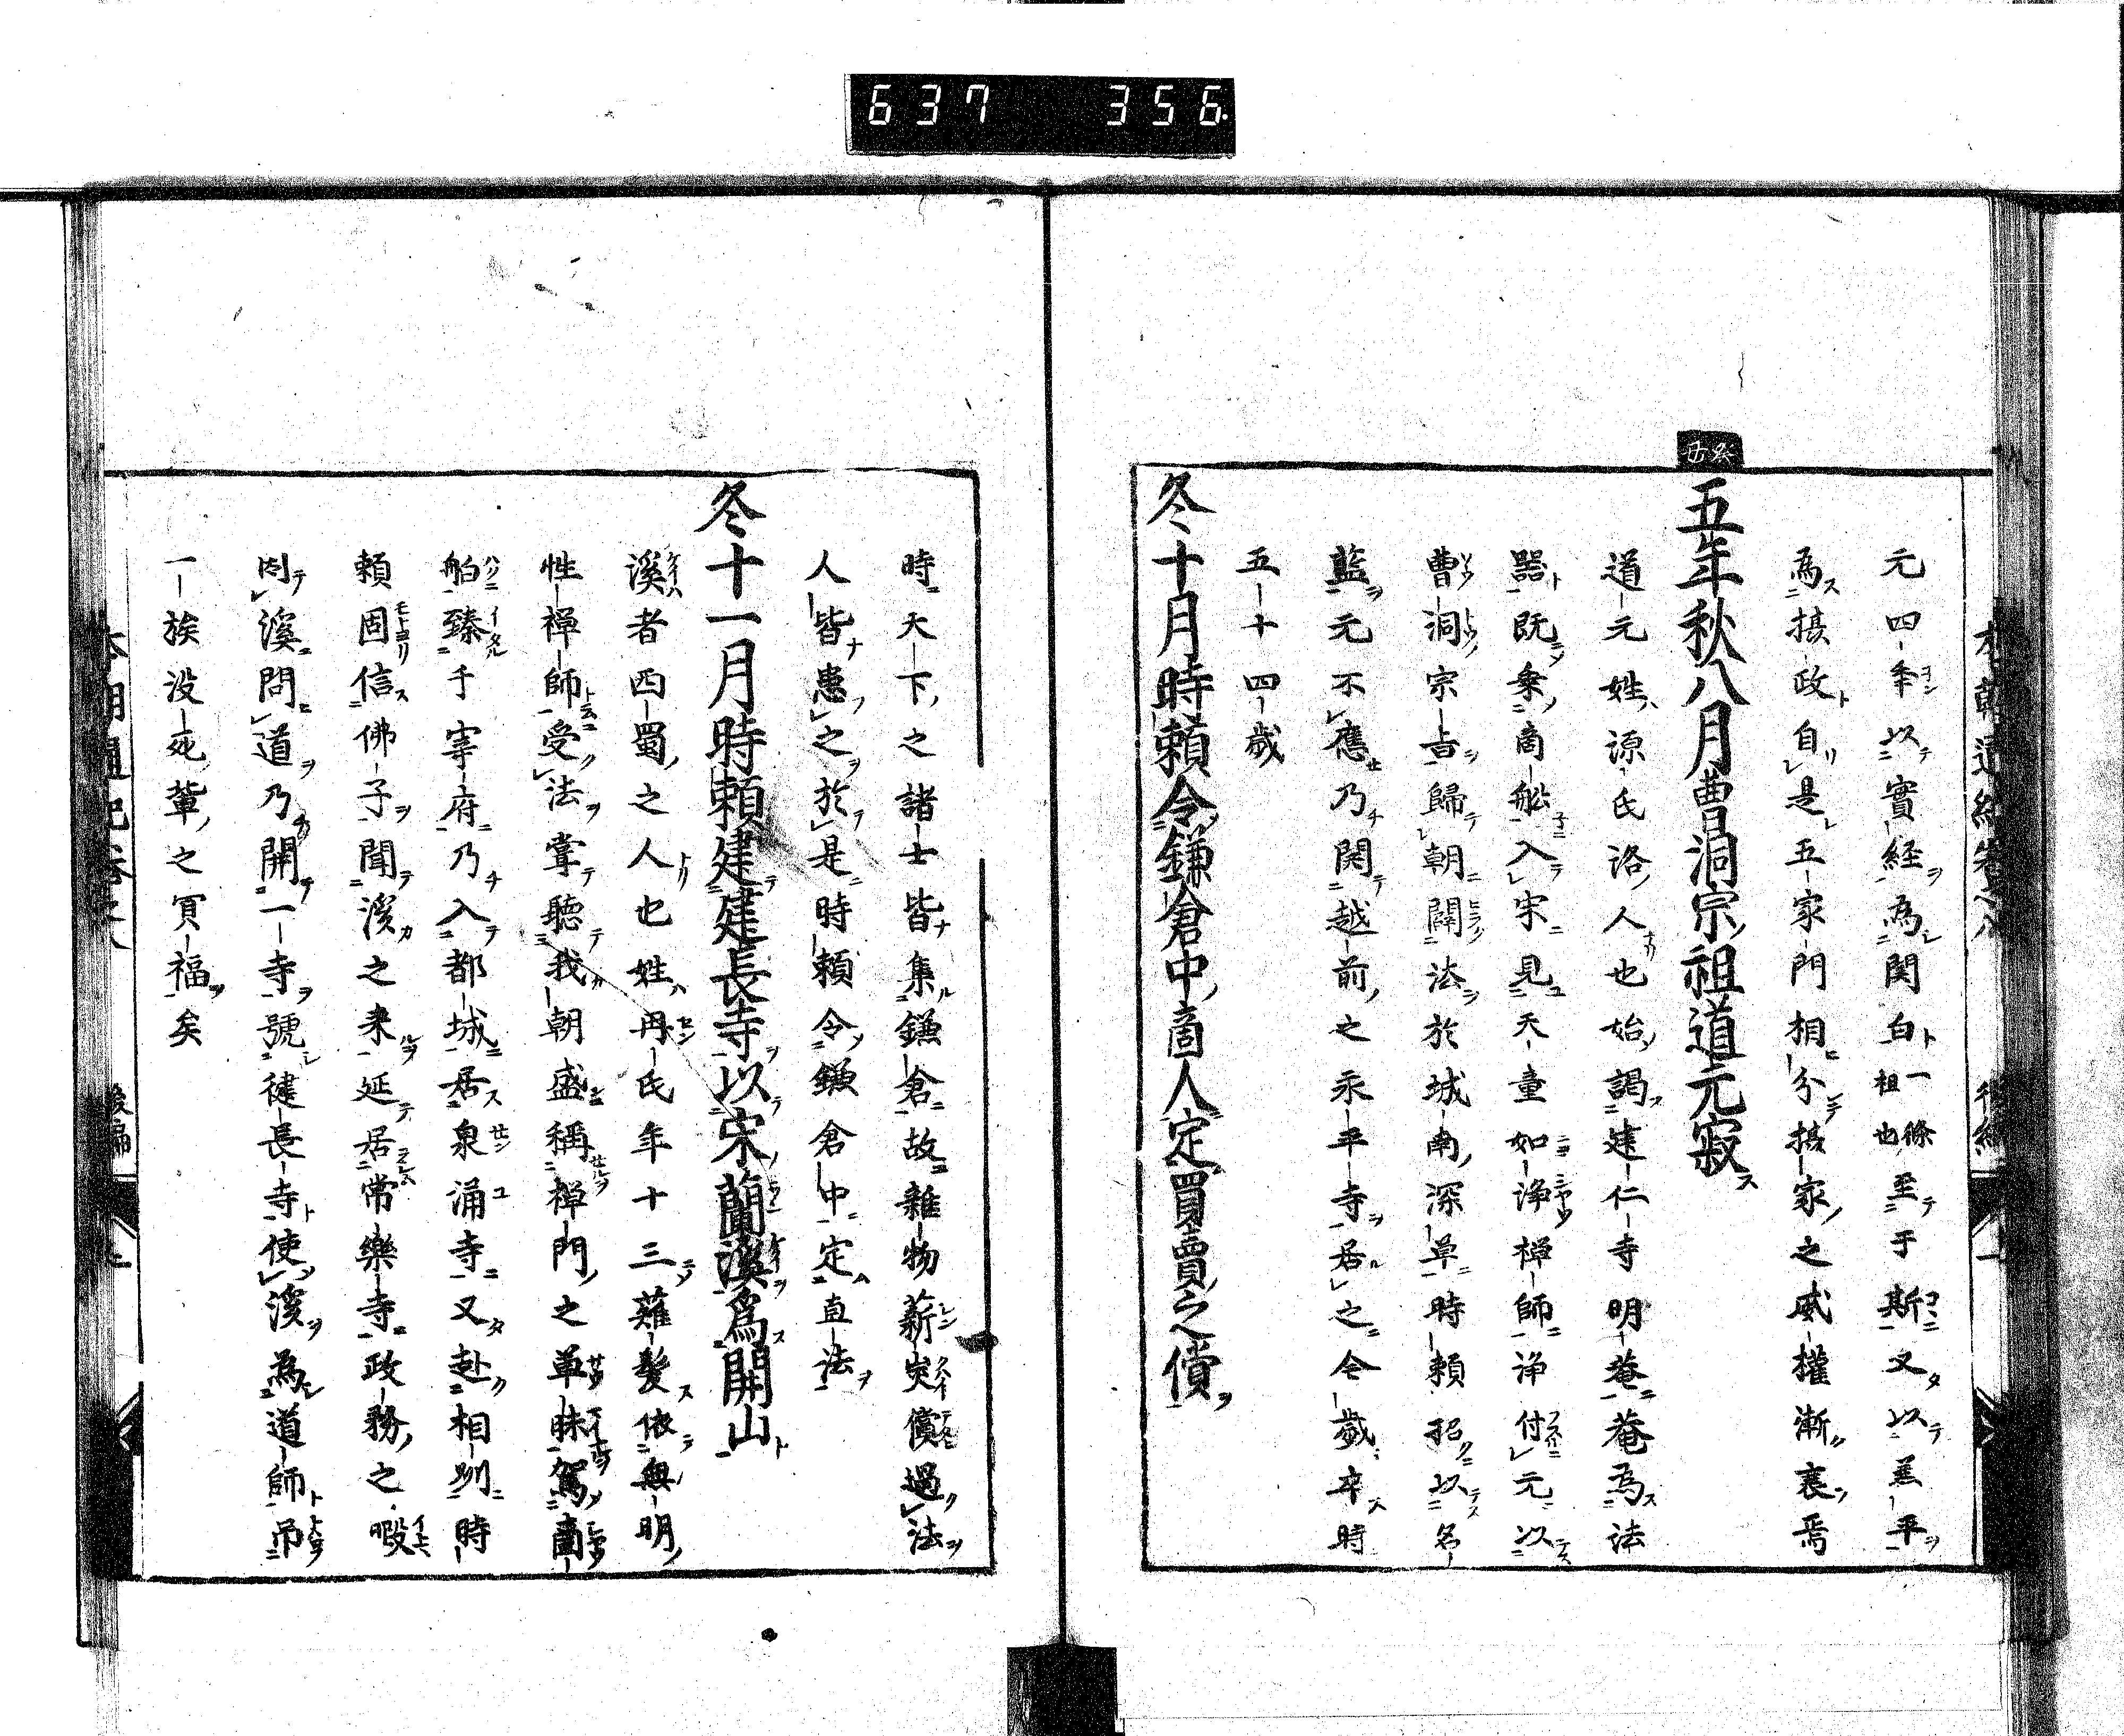 637 356
元四年以實経為関白一條祖也至于斯又以兼平
為摂政自是五家門相分摂家之威權漸衰焉
癸丑
五年秋八月曹洞宗祖道元寂
道元姓源氏洛人也始謁建仁寺明菴菴為法
器既乗商舩入宋見天童如淨禅師淨付元以
曹洞宗旨歸朝闡法於城南深草時頼招以名
藍元不應乃関越前之永平寺居之今歳卒時
五十四歳
冬十月時頼令鎌倉中商人定買賣之償
時天下之諸士皆集鎌倉故雜物薪炭償過法
人皆患之於是時頼令鎌倉中定直法
冬十一月時頼建建長寺以宋蘭溪爲開山
溪者西蜀之人也姓冉氏年十三薙髪依無明
性禅師受法甞聴我朝盛稱禅門之草昧駕商
舶臻于宰府乃入都城居泉涌寺又赴相州時
頼固信佛子聞溪之来延居常樂寺政務之暇
問溪問道乃開一寺號建長寺使溪為道師吊
一族没死輩之冥福矣
本朝通紀巻之八 後編